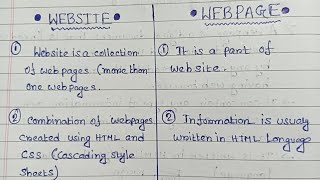 • WEBSITE •
• WEBPAGE •
① Website is a collection
of webpages (more than
one webpages.
② Combination of webpages
created using HTML and
CSS (Cascading style
Sheets)
① It is a part of
website.
② Information is usualy
written in HTML Language